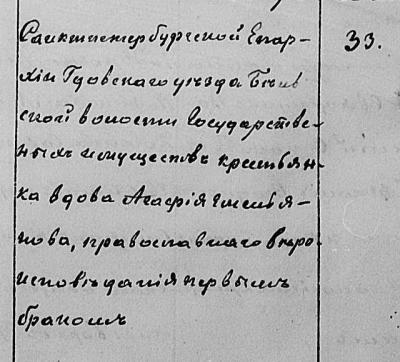 Санктпетербургской Епар- 33.
хіи Гдовскаго уѣзда
ской волости Государстве-
ныхъ имуществъ крестьян-
ка вдова Агафія Емелья-
нова, православнаго вѣро-
исповѣданія первымъ
бракомъ